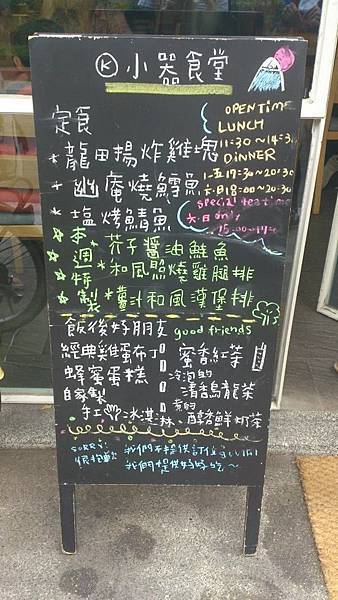 Ⓚ小器食堂
OPEN TIME
LUNCH
11:30~14:30
DINNER
一-五 17:30~20:30
六.日 18:00~20:30
special tea time
六.日 only
15:00~17:00
定食
*龍田揚炸雞塊
*幽庵燒鱈魚
*塩烤鯖魚
本週特製
*芥子醬油鮭魚
*和風照燒雞腿排
*薑汁和風漢堡排
飯後好朋友 good friends
經典雞蛋布丁
蜂蜜蛋糕
自家製
手工冰淇淋
蜜香紅茶
冷泡的
清香烏龍茶
煮的
醇鮮奶茶
sorry!
很抱歉
我們不提供訂位
我們提供好好吃~